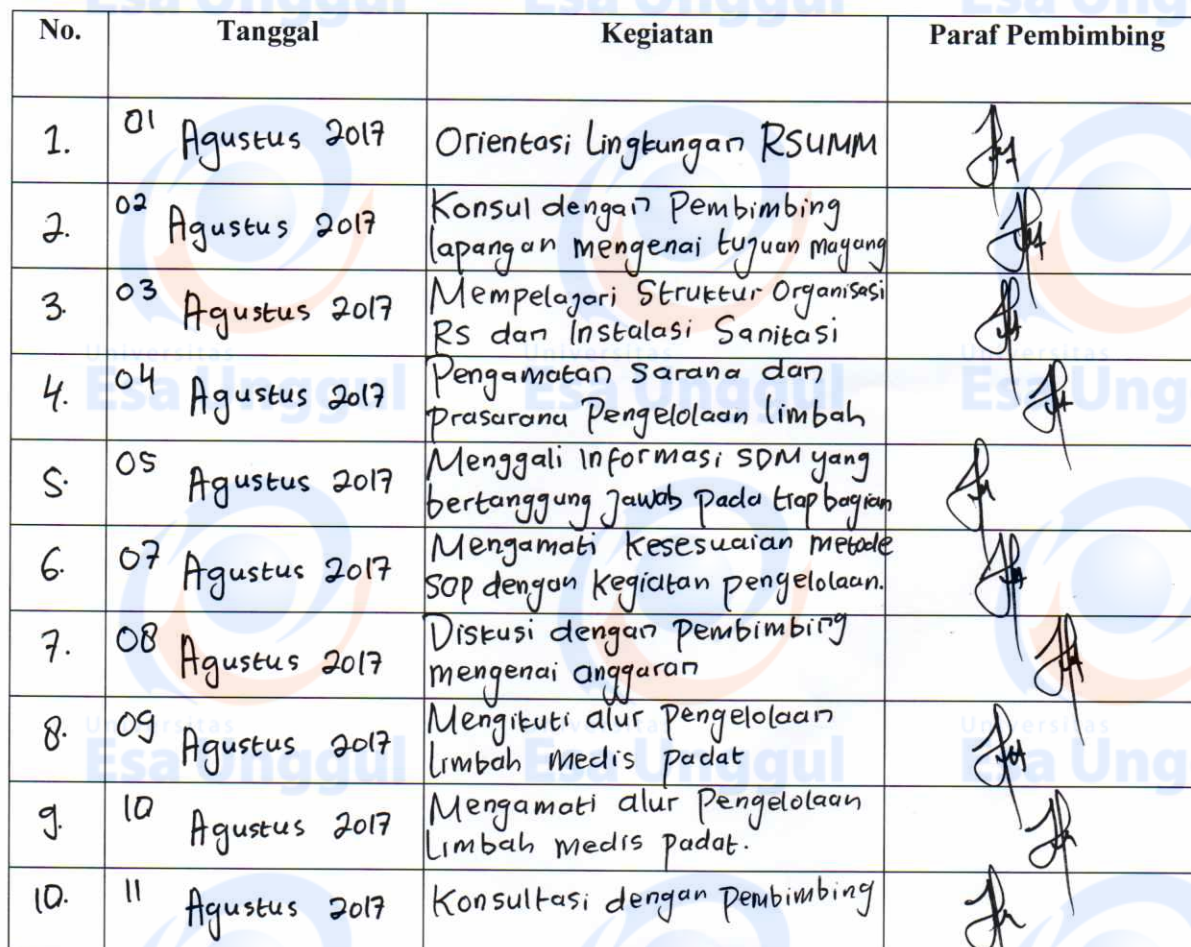 No. Tanggal Kegiatan Paraf Pembimbing
1. 01 Agustus 2017 Orientasi Lingkungan RSUMM
2. 02 Agustus 2017 Konsul dengan Pembimbing
lapangan mengenai tujuan magang
3. 03 Agustus 2017 Mempelajari Struktur Organisasi
RS dan Instalasi Sanitasi
4. 04 Agustus 2017 Pengamatan Sarana dan
prasarana Pengelolaan limbah
5. 05 Agustus 2017 Menggali Informasi SDM yang
bertanggung Jawab pada tiap bagian
6. 07 Agustus 2017 Mengamati Kesesuaian metode
SOP dengan Kegiatan pengelolaan.
7. 08 Agustus 2017 Diskusi dengan Pembimbing
mengenai anggaran
8. 09 Agustus 2017 Mengikuti alur Pengelolaan
Limbah Medis padat
9. 10 Agustus 2017 Mengamati alur Pengelolaan
Limbah Medis padat.
10. 11 Agustus 2017 Konsultasi dengan Pembimbing
Universitas
Esa Unggul